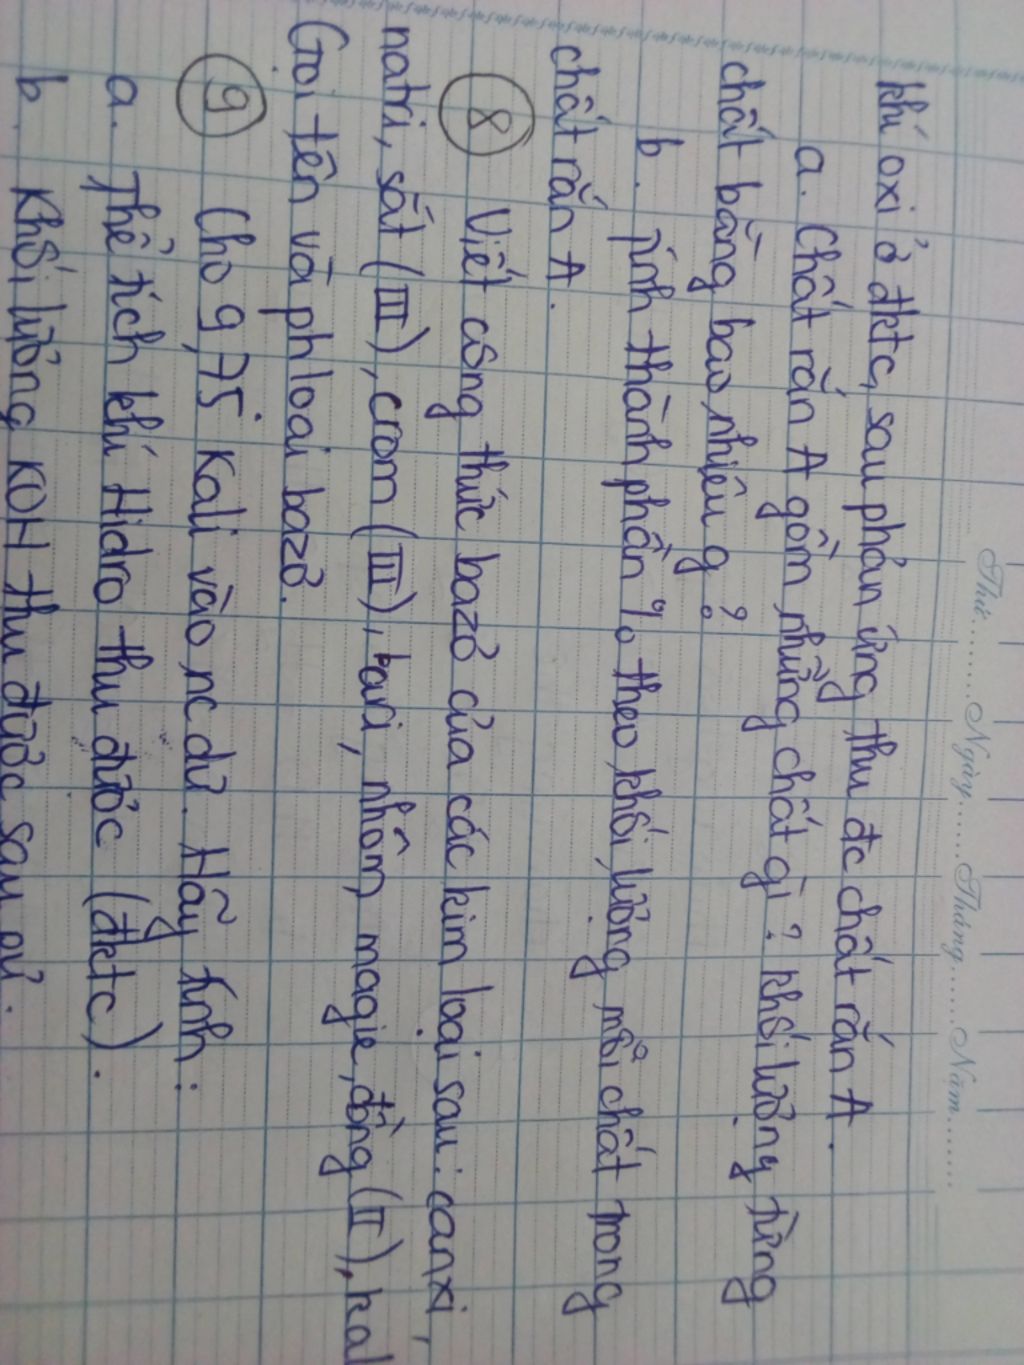 Thứ.......Ngày.......Tháng.......Năm.......
khí oxi ở đktc, sau phản ứng thu đc chất rắn A.
a. Chất rắn A gồm những chất gì? khối lượng từng
chất bằng bao nhiêu g?
b. Tính thành phần % theo khối lượng mỗi chất trong
chất rắn A.
8 Viết công thức bazơ của các kim loại sau: canxi,
natri, sắt (III), crom (III), bari, nhôm, magie, đồng (II), kal
Gọi tên và ph loại bazơ.
9 Cho 9,75 Kali vào nc dư. Hãy tính:
a. Thể tích khí Hidro thu được (đktc).
b. Khối lượng KOH thu được sau pứ.